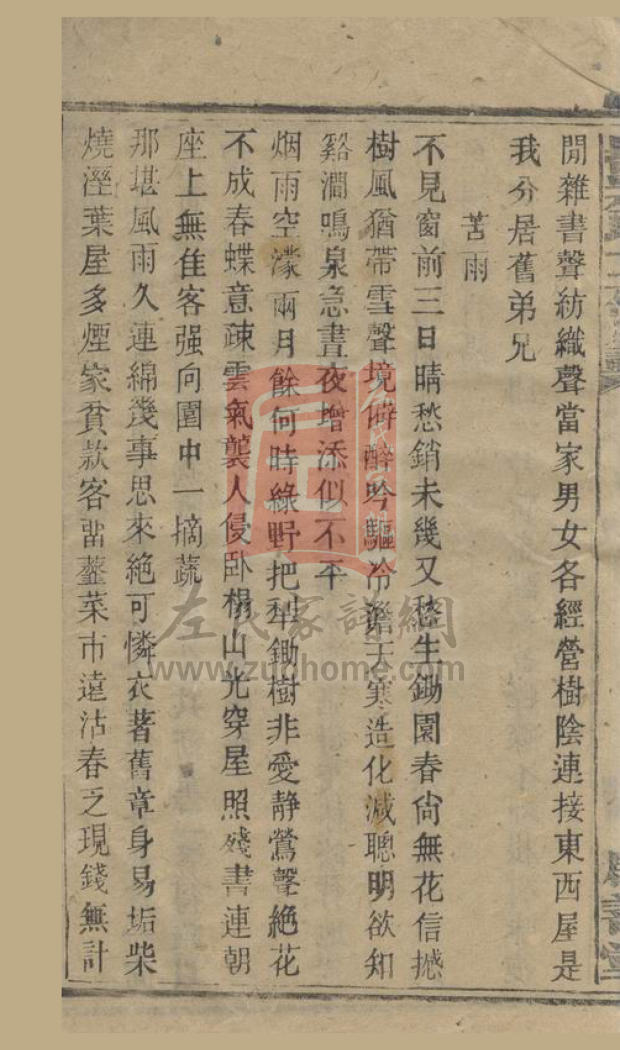 閒雜書聲紡織聲當家男女各經營樹陰連接東西屋是
我分居舊弟兄
苦雨
不見窗前三日晴愁銷未幾又愁生鋤園春尙無花信撼
樹風猶帶雪聲境僻醉吟驅冷澹天寒造化減聰明欲知
谿澗鳴泉急晝夜增添似不平
烟雨空濛兩月餘何時綠野把犁鋤樹非愛靜鶯聲絶花
不成春蝶意疎雲氣襲人侵卧榻山光穿屋照殘書連朝
座上無隹客强向園中一摘蔬
那堪風雨久連綿幾事思來絶可憐衣著舊章身易垢柴
燒溼葉屋多煙家貧款客畱虀菜市遠沽春乏現錢無計
左氏家譜網
www.zuohome.com